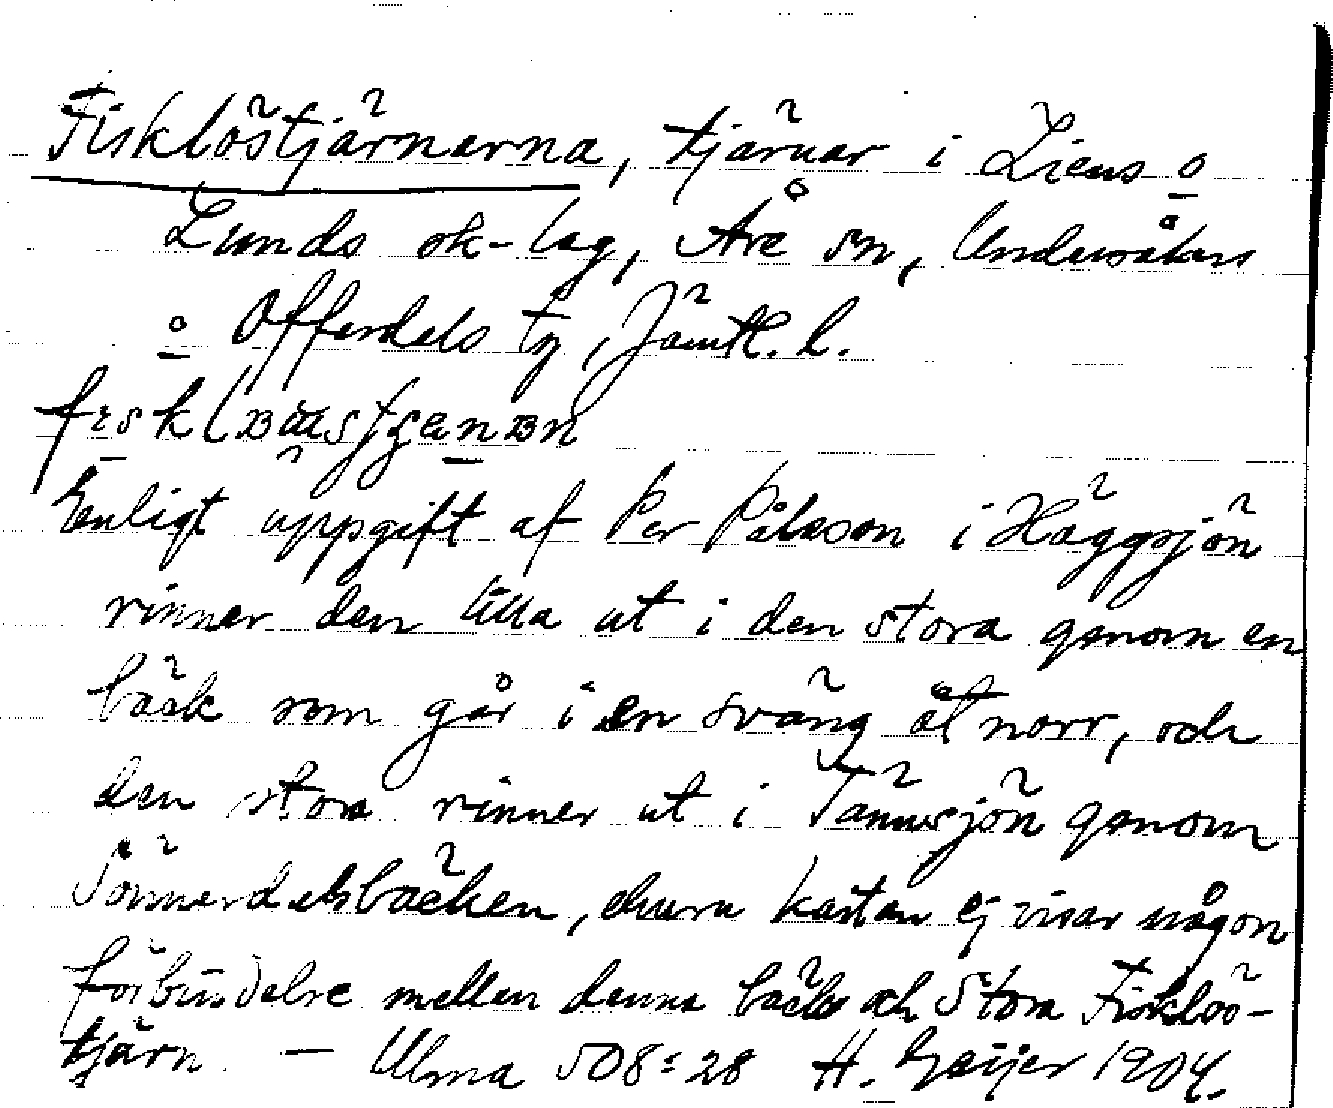 Fisklöstjärnarna, tjärnar i Liens o
Lunds sk-lag, Åre sn, Undersåkers
o Offerdals tg, Jämtl. l.
Enligt uppgift af Per Pålsson i Häggsjön
rinner den lilla ut i den stora genom en
bäck som går i en sväng åt norr, och
den stora rinner ut i Tännsjön genom
Sönnerdalsbäcken, ehuru kartan ej visar någon
förbindelse mellan denna bäck och Stora Fisklös-
tjärn — Ulma 508:28 H. Geijer 1904.